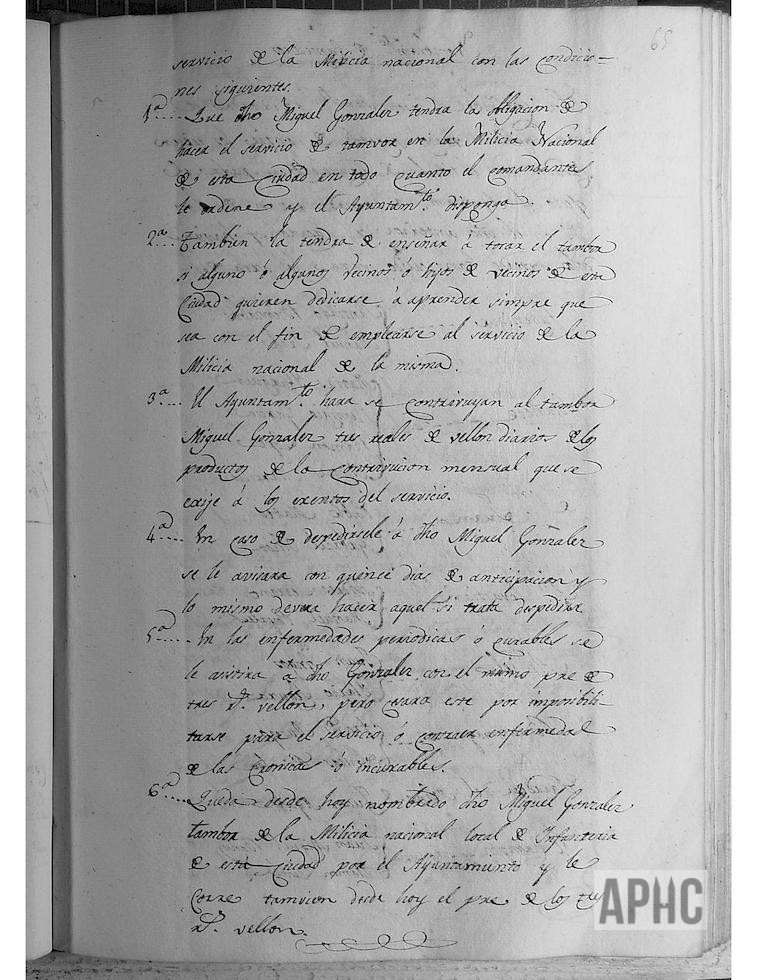 65
servicio de la Milicia nacional con las condicio=
nes siguientes.
1ª.... Que dho Miguel Gonzalez tendra la obligacion de
hacer el servicio de tamvor en la Milicia Nacional
de esta Ciudad en todo cuanto el comandante
le ordene y el Ayuntamto. disponga.
2ª... Tambien la tendra de enseñar á tocar el tambor
si alguno ó algunos vecinos ó hijos de vecinos de esta
Ciudad quieren dedicarse á aprender simpre que
sea con el fin de emplearse al servicio de la
Milicia nacional de la misma.
3ª... El Ayuntamto. hara se contrivuyan al tambor
Miguel Gonzalez tres reales de vellon diarios de los
productos de la Contrivucion mensual que se
exije á los exentos del servicio.
4ª.... En caso de despedirsele á dho Miguel Gonzalez
se le avisara con quince dias de anticipacion y
lo mismo devera hacer aquel si trata despedirse
5ª..... En las enfermedades periodicas ó curables se
le asistira a dho Gonzalez con el mismo pre de
tres rs. vellon, pero cesara este por imposibili
tarse para el servicio ó contraer enfermedad
de las Cronicas ó incurables.
6ª.... Queda desde hoy nombrado dho Miguel Gonzalez
tambor de la Milicia nacional local de Infanteria
de esta Ciudad por el Ayuntamiento y le
Corre tamvien desde hoy el pre de los tres
rs. vellon.
APHC